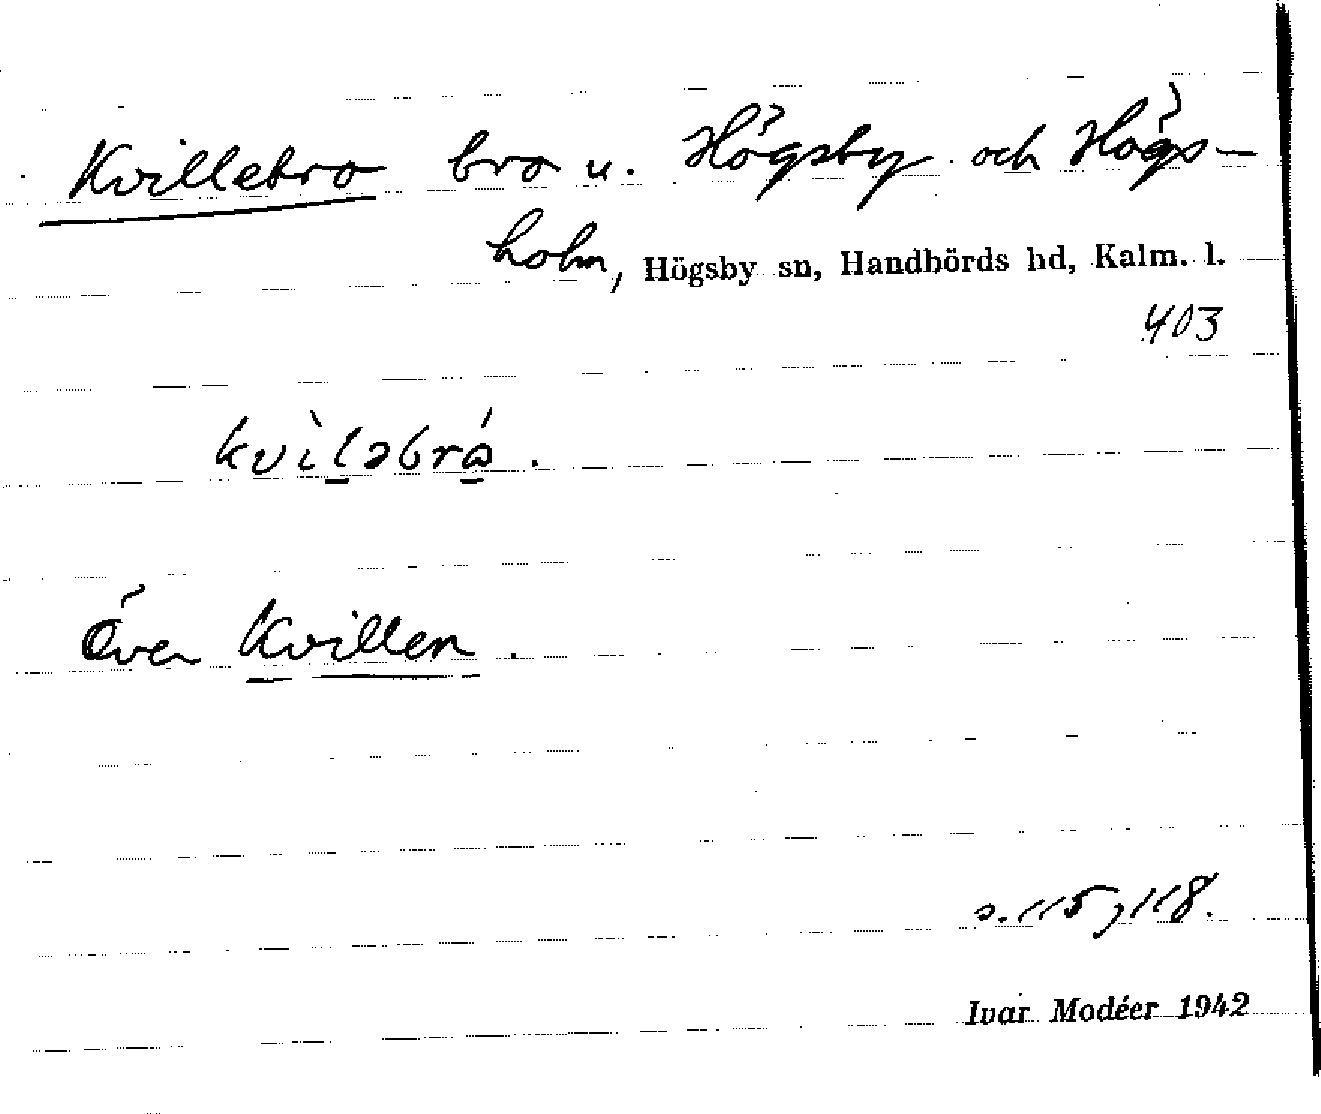 Kvillebro bro u. Högsby och Högs-
holm, Högsby sn, Handbörds hd, Kalm. l.
403
kvìləbró.
Över Kvillen.
s. 115, 118.
Ivar Modéer 1942